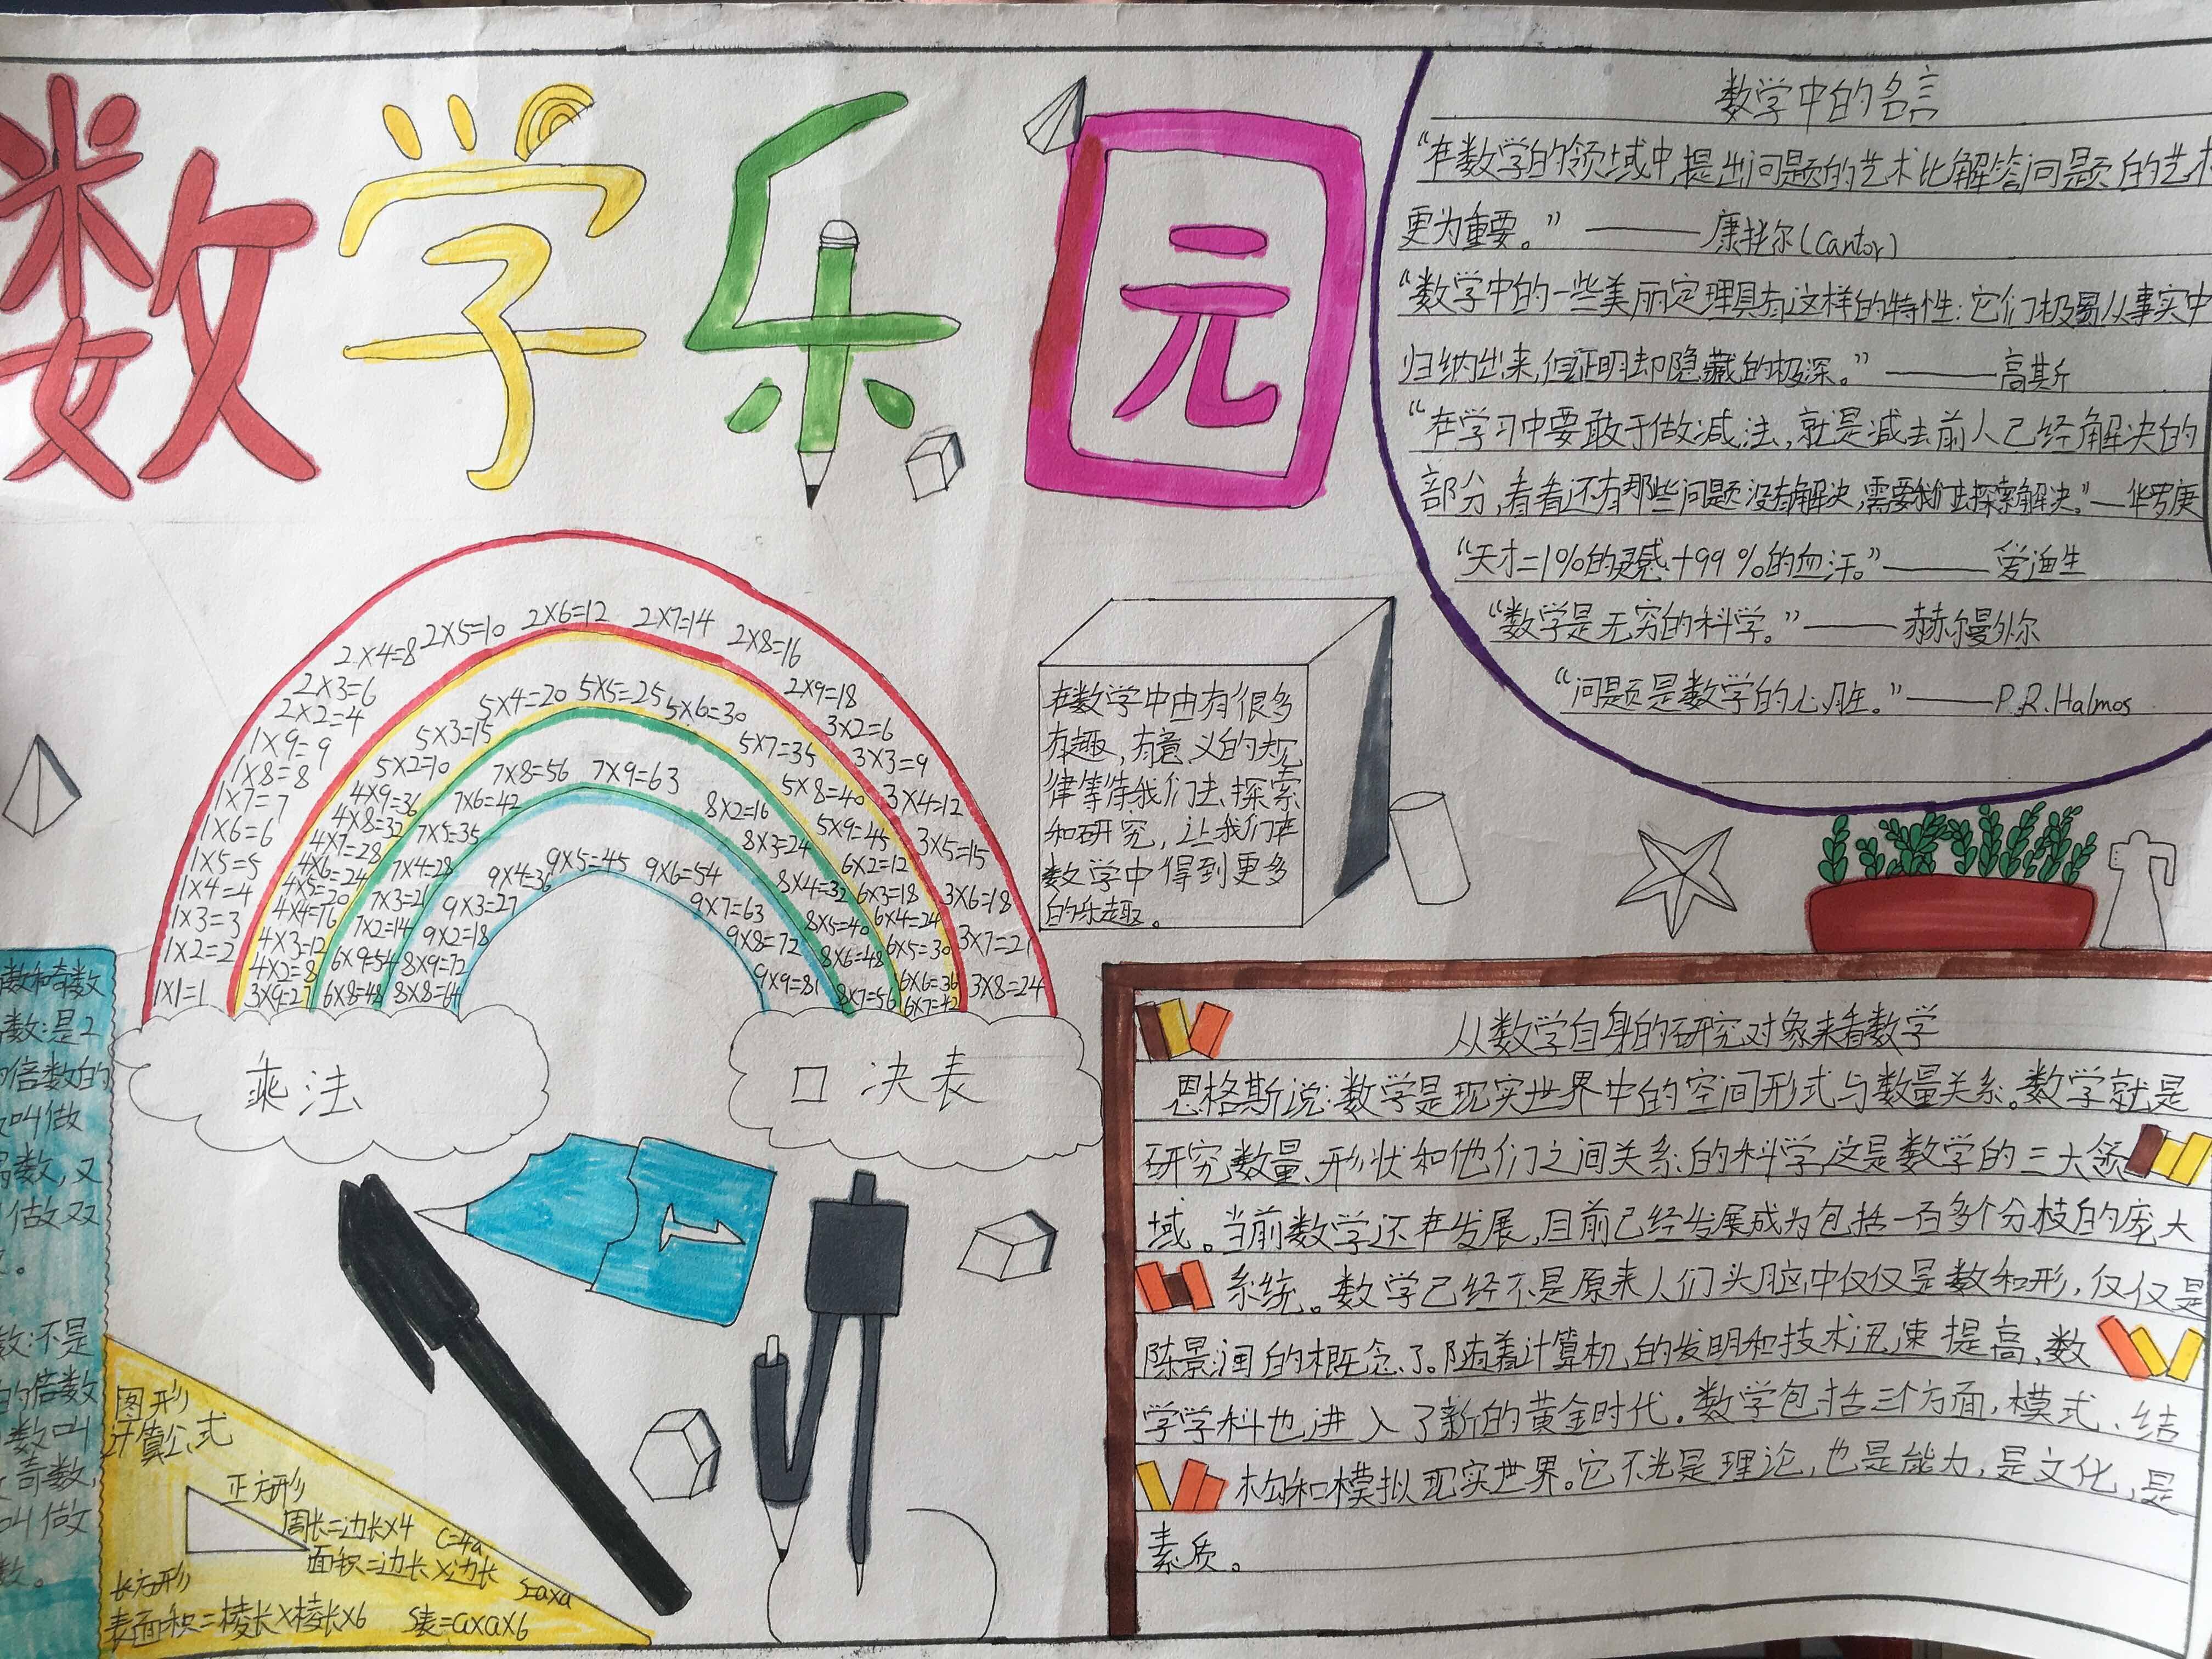 数学乐园
数学中的名言
“在数学的领域中,提出问题的艺术比解答问题的艺术
更为重要。”———康托尔(Cantor)
“数学中的一些美丽定理具有这样的特性:它们极易从事实中
归纳出来,但证明却隐藏的极深。”———高斯
“在学习中要敢于做减法,就是减去前人已经解决的
部分,看看还有那些问题没有解决,需要我们去探索解决。”—华罗庚
“天才=1%的灵感+99%的血汗。”———爱迪生
“数学是无穷的科学。”———赫尔曼外尔
“问题是数学的心脏。”———P.R.Halmos
1×1=1
1×2=2
1×3=3
1×4=4
1×5=5
1×6=6
1×7=7
1×8=8
1×9=9
2×2=4
2×3=6
2×4=8
2×5=10
2×6=12
2×7=14
2×8=16
2×9=18
3×2=6
3×3=9
3×4=12
3×5=15
3×6=18
3×7=21
3×8=24
3×9=27
4×2=8
4×3=12
4×4=16
4×5=20
4×6=24
4×7=28
4×8=32
4×9=36
5×2=10
5×3=15
5×4=20
5×5=25
5×6=30
5×7=35
5×8=40
5×9=45
6×2=12
6×3=18
6×4=24
6×5=30
6×6=36
6×7=42
6×8=48
6×9=54
7×2=14
7×3=21
7×4=28
7×5=35
7×6=42
7×8=56
7×9=63
8×2=16
8×3=24
8×4=32
8×5=40
8×6=48
8×7=56
8×8=64
8×9=72
9×2=18
9×3=27
9×4=36
9×5=45
9×6=54
9×7=63
9×8=72
9×9=81
乘法
口决表
在数学中由有很多
有趣,有意义的规
律等待我们去探索
和研究,让我们在
数学中得到更多
的乐趣。
从数学自身的研究对象来看数学
恩格斯说:数学是现实世界中的空间形式与数量关系。数学就是
研究数量、形状和他们之间关系的科学,这是数学的三大领
域。当前数学还在发展,目前已经发展成为包括一百多个分枝的庞大
系统。数学已经不是原来人们头脑中仅仅是数和形,仅仅是
陈景润的概念了。随着计算机的发明和技术迅速提高,数
学学科也进入了新的黄金时代。数学包括三个方面,模式、结
构和模拟现实世界。它不光是理论,也是能力,是文化,是
素质。
数和奇数
数:是2
倍数的
叫做
偶数,又
做双
数:不是
的倍数
数叫
奇数,
叫做
数。
图形
计算公式
正方形
周长=边长×4 C=4a
面积=边长×边长 S=a×a
长方形
表面积=棱长×棱长×6 S表=a×a×6